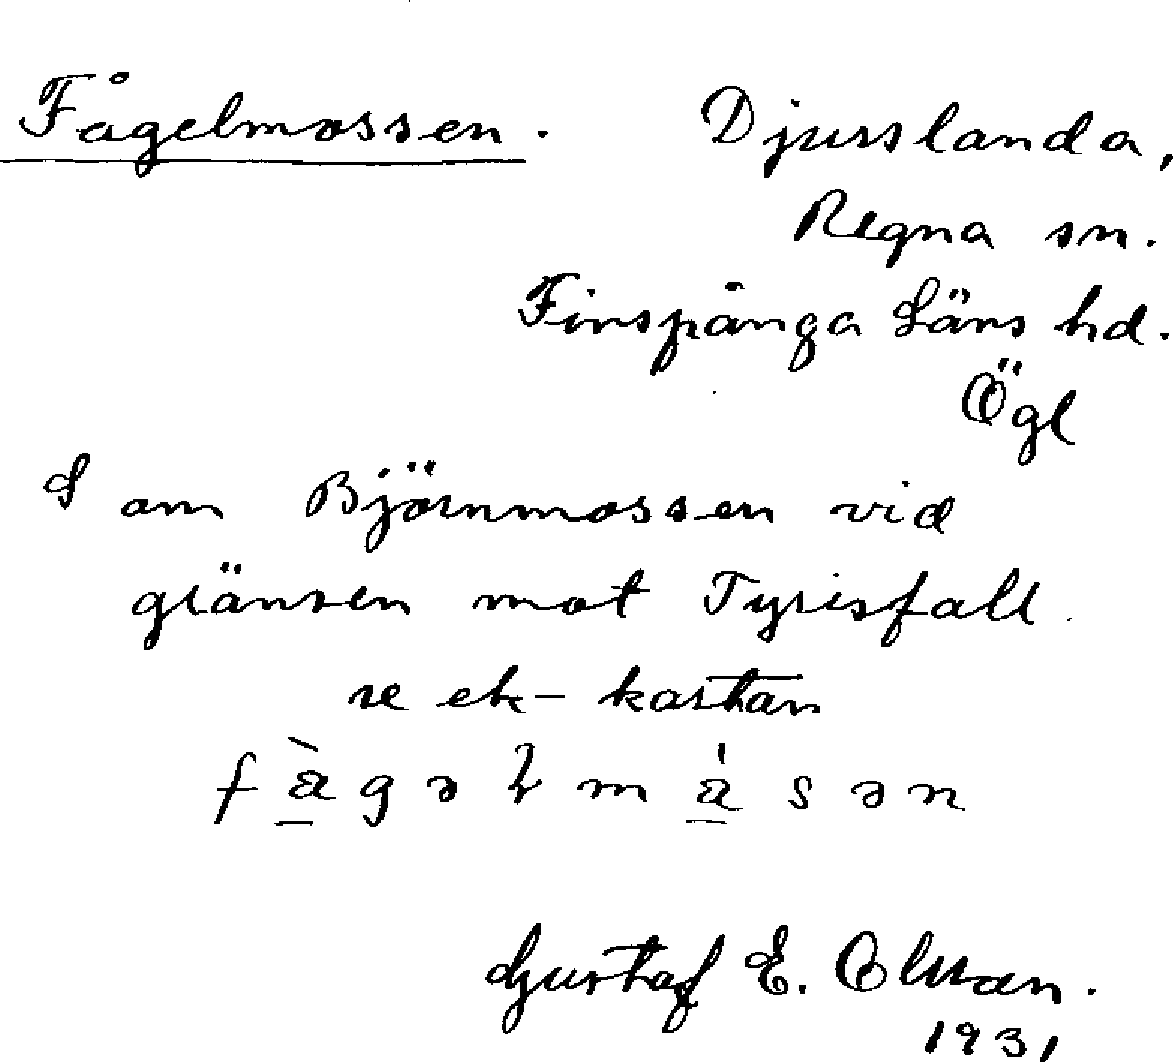 Fågelmossen. Djurslanda,
Regna sn.
Finspånga Läns hd.
Ögl
S om Björnmossen vid
gränsen mot Tyrisfall.
se ek-kartan
Gustaf E. Olsson.
1931